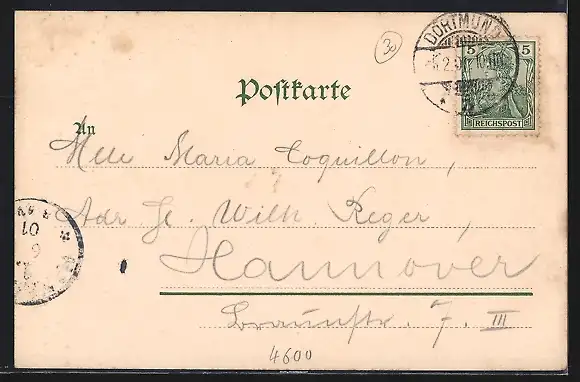 30
DORTMUND
5 5
REICHSPOST
Postkarte
An
Mlle Maria Coquillon,
Adr Fr. Wilh. Reger,
Hannover
Braunstr. 7. III
01
6
2
4600